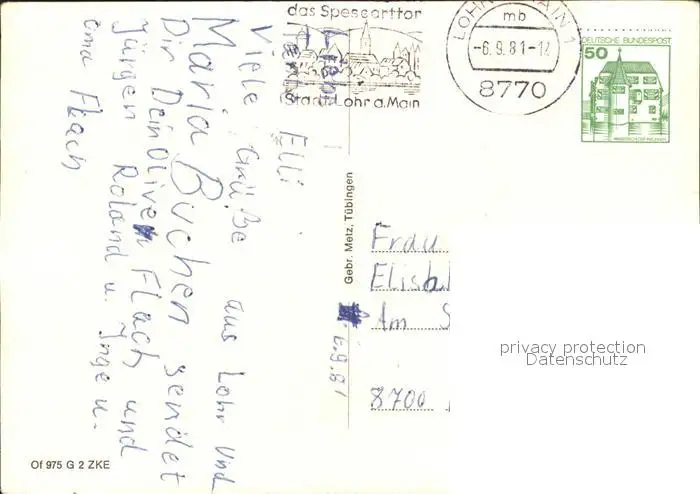 das Spessarttor
Stadt Lohr a. Main
LOHR MAIN 1
mb
-6.9.81-12
8770
DEUTSCHE BUNDESPOST
50
Liebe
Elli
Viele Grüße aus Lohr und
Maria Buchen sendet
Dir Dein Oliver Flach und
Jürgen Roland u. Inge u.
oma Flach
6.9.81
Gebr. Metz, Tübingen
Frau
Elisab
Am S
8700
privacy protection
Datenschutz
Of 975 G 2 ZKE